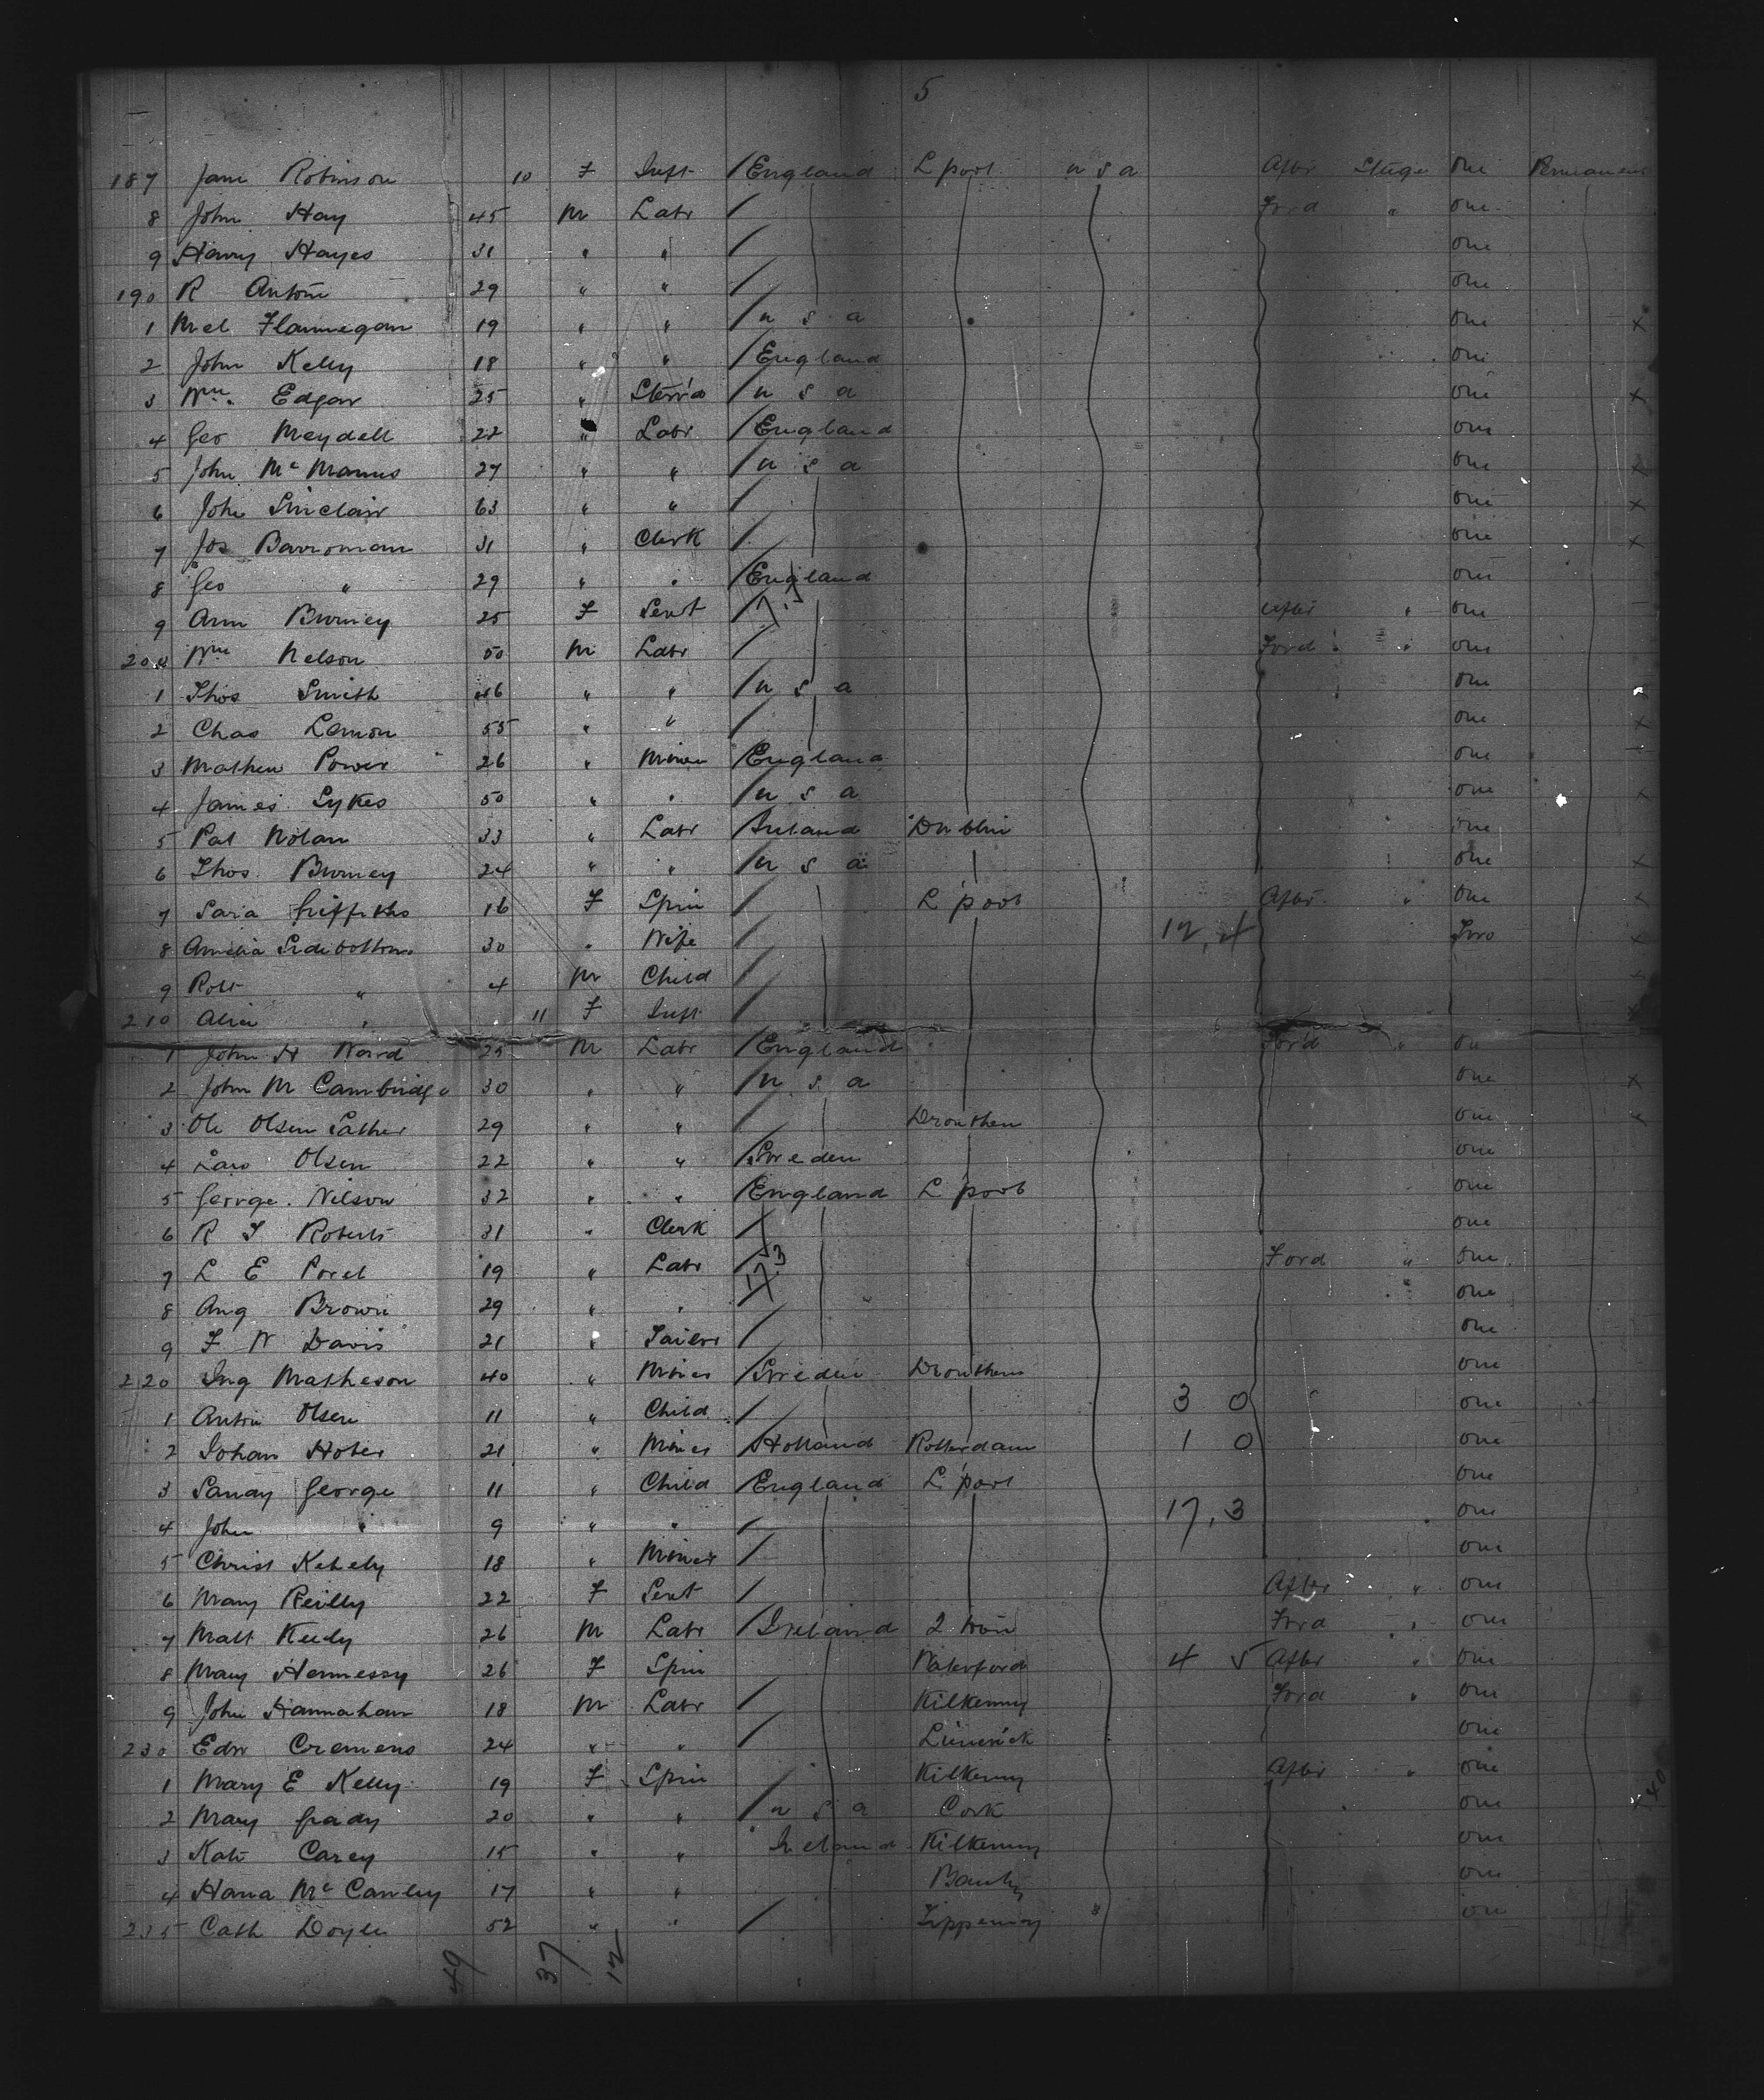 5
187 Jane Robinson 10 F Inft England L'pool u s a After Stege One Permanent
8 John Hay 45 M Labr Ford " One
9 Harry Hayes 31 " " One
190 R Antoni 29 " " One
1 Mcl Flannegan 19 " " u s a One x
2 John Kelly 18 " " England One
3 Wm. Edgar 25 " u s a One x
4 Geo Meydell 22 " Labr England One
5 John McManus 27 " " u s a One x
6 John Sinclair 63 " " One x
7 Jos Barroman 31 " Clerk One x
8 Geo " 29 " " England One
9 Ann Burney 25 F Servt After " One
200 Wm Nelson 50 M Labr Ford " One
1 Thos Smith 46 " " u s a One
2 Chas Lemon 55 " " One x
3 Mathew Power 26 " Miner England One
4 James Sykes 50 " " u s a One x
5 Pat Nolan 33 " Labr Ireland Dublin One
6 Thos. Burney 24 " " u s a One x
7 Sara Griffiths 16 F Spin L'pool After " One x
8 Amelia Sidebottom 30 " Wife 12,4 Two x
9 Robt " 4 M Child
210 Alice " 11 F Inft
1 John H Ward 25 M Labr England Ford " One
2 John M Cambridge 30 " " u s a One x
3 Ole Olsen Sather 29 " " Dronthen One x
4 Lars Olsen 22 " " Sweden One
5 George Nilson 32 " " England L'pool One
6 R T Roberts 31 " Clerk One
7 L E Porel 19 " Labr 17.3 Ford " One
8 Aug Brown 29 " " One
9 F. W Davis 21 " One
220 Ing Matheson 40 " Miner Sweden Dronthem One
1 Anton Olsen 11 " Child 3 0 One
2 Johan Hober 21 " Miner Holland Rotterdam 1 0 One
3 Sanday George 11 " Child England L'pool One
4 John " 9 " " 17,3 One
5 Christ Kehely 18 " Miner One
6 Mary Reilly 22 F Servt After " One
7 Matt Keedy 26 M Labr Ireland Ford " One
8 Mary Hennessy 26 F Spin Waterford 4 5 After " One
9 John Hannahan 18 M Labr Kilkenny Ford " One
230 Edw Cremens 24 " " Limerick One
1 Mary E Kelly 19 F Spin Kilkenny After " One
2 Mary Grady 20 " " u s a Cork One
3 Kate Carey 15 " " Ireland Kilkenny One
4 Hana McCauley 17 " " One
235 Cath Doyle 52 " " One
49 37 12